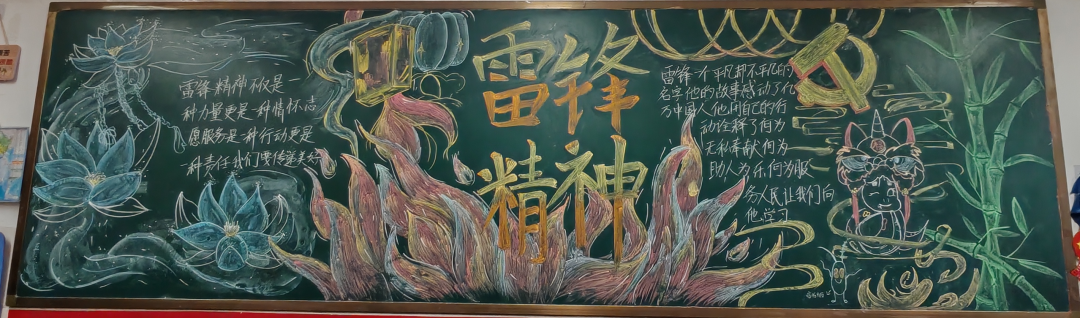 雷锋精神不仅是一
种力量更是一种情怀志
愿服务是一种行动更是
一种责任我们要传递美好
雷锋
精神
雷锋一个平凡却不平凡的
名字他的故事感动了亿
万中国人他用自己的行
动诠释了何为
无私奉献何为
助人为乐何为服
务人民让我们向
他学习